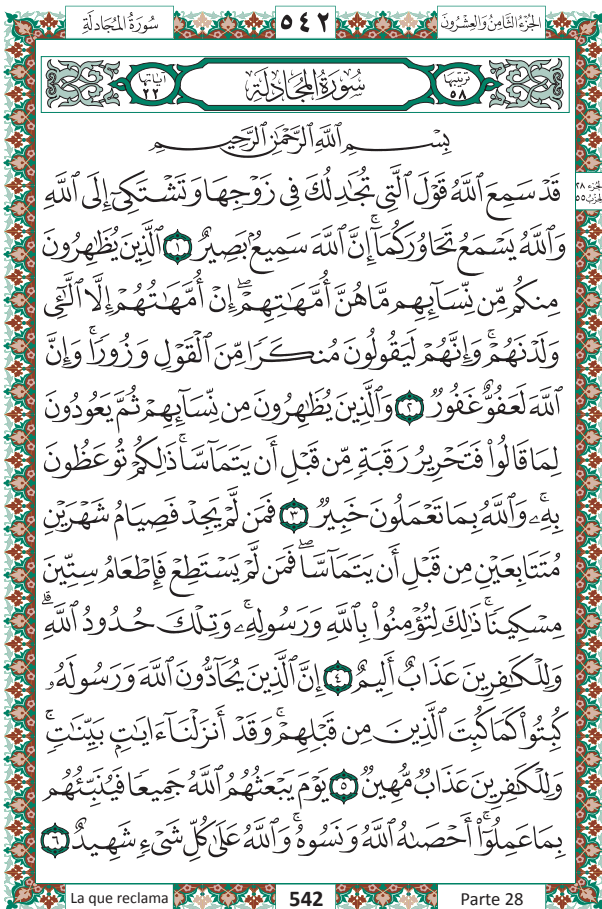 الجُزْءُ الثَّامِنُ وَالعِشْرُونَ ٥٤٢ سُورَةُ المُجَادلَةِ
تَرتيبُهَا ٥٨ سُورَةُ المُجَادلَةِ آيَاتُهَا ٢٢
بِسْمِ ٱللَّهِ ٱلرَّحْمَٰنِ ٱلرَّحِيمِ
قَدْ سَمِعَ ٱللَّهُ قَوْلَ ٱلَّتِى تُجَٰدِلُكَ فِى زَوْجِهَا وَتَشْتَكِىٓ إِلَى ٱللَّهِ
الجزء ٢٨
الحزب ٥٥
وَٱللَّهُ يَسْمَعُ تَحَاوُرَكُمَآ ۚ إِنَّ ٱللَّهَ سَمِيعٌۢ بَصِيرٌ ١ ٱلَّذِينَ يُظَٰهِرُونَ
مِنكُم مِّن نِّسَآئِهِم مَّا هُنَّ أُمَّهَٰتِهِمْ ۖ إِنْ أُمَّهَٰتُهُمْ إِلَّا ٱلَّٰٓـِٔى
وَلَدْنَهُمْ ۚ وَإِنَّهُمْ لَيَقُولُونَ مُنكَرًا مِّنَ ٱلْقَوْلِ وَزُورًا ۚ وَإِنَّ
ٱللَّهَ لَعَفُوٌّ غَفُورٌ ٢ وَٱلَّذِينَ يُظَٰهِرُونَ مِن نِّسَآئِهِمْ ثُمَّ يَعُودُونَ
لِمَا قَالُوا۟ فَتَحْرِيرُ رَقَبَةٍ مِّن قَبْلِ أَن يَتَمَآسَّا ۚ ذَٰلِكُمْ تُوعَظُونَ
بِهِۦ ۚ وَٱللَّهُ بِمَا تَعْمَلُونَ خَبِيرٌ ٣ فَمَن لَّمْ يَجِدْ فَصِيَامُ شَهْرَيْنِ
مُتَتَابِعَيْنِ مِن قَبْلِ أَن يَتَمَآسَّا ۖ فَمَن لَّمْ يَسْتَطِعْ فَإِطْعَامُ سِتِّينَ
مِسْكِينًا ۚ ذَٰلِكَ لِتُؤْمِنُوا۟ بِٱللَّهِ وَرَسُولِهِۦ ۚ وَتِلْكَ حُدُودُ ٱللَّهِ ۗ
وَلِلْكَٰفِرِينَ عَذَابٌ أَلِيمٌ ٤ إِنَّ ٱلَّذِينَ يُحَآدُّونَ ٱللَّهَ وَرَسُولَهُۥ
كُبِتُوا۟ كَمَا كُبِتَ ٱلَّذِينَ مِن قَبْلِهِمْ ۚ وَقَدْ أَنزَلْنَآ ءَايَٰتٍۭ بَيِّنَٰتٍ ۚ
وَلِلْكَٰفِرِينَ عَذَابٌ مُّهِينٌ ٥ يَوْمَ يَبْعَثُهُمُ ٱللَّهُ جَمِيعًا فَيُنَبِّئُهُم
بِمَا عَمِلُوٓا۟ ۚ أَحْصَىٰهُ ٱللَّهُ وَنَسُوهُ ۚ وَٱللَّهُ عَلَىٰ كُلِّ شَىْءٍ شَهِيدٌ ٦
La que reclama 542 Parte 28